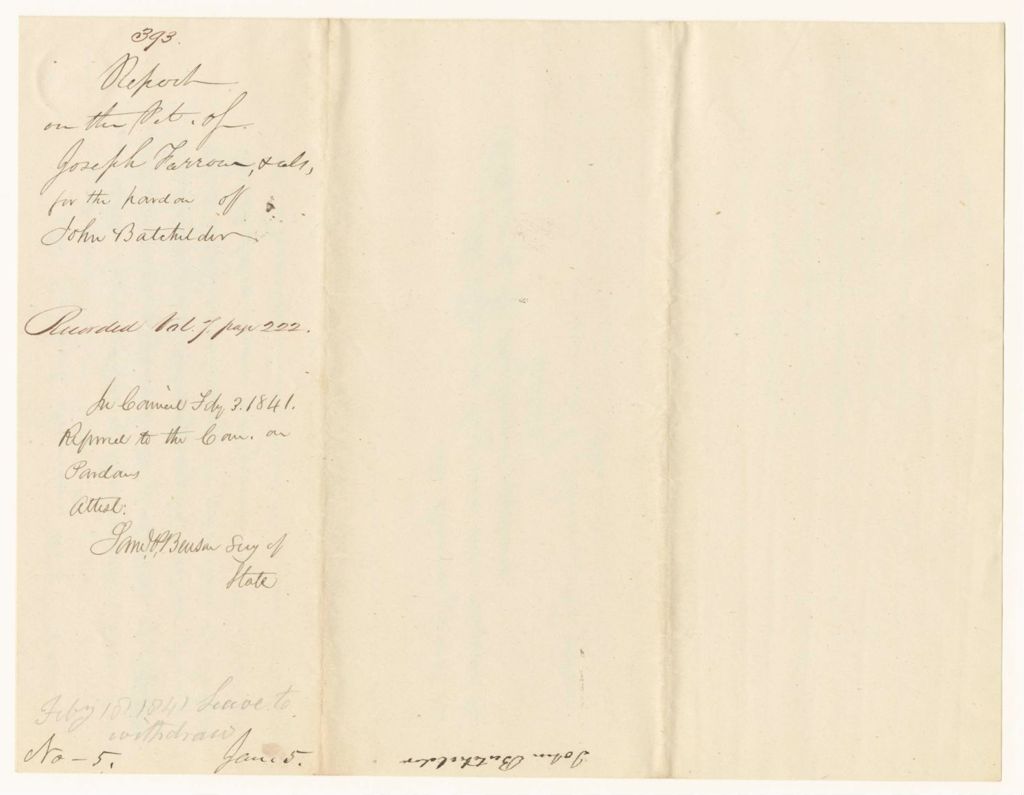 393.
Report
on the Pet. of
Joseph Farrow, & als,
for the pardon off
John Batchelder
Recorded Vol. 7 page 222.
In Council Feby 3. 1841.
Referred to the Com. on
Pardons
Attest:
Saml P. Benson Secy of
State
Feby 18. 1841 Leave to
withdraw
No - 5. Jan. 5.
John Batchelder